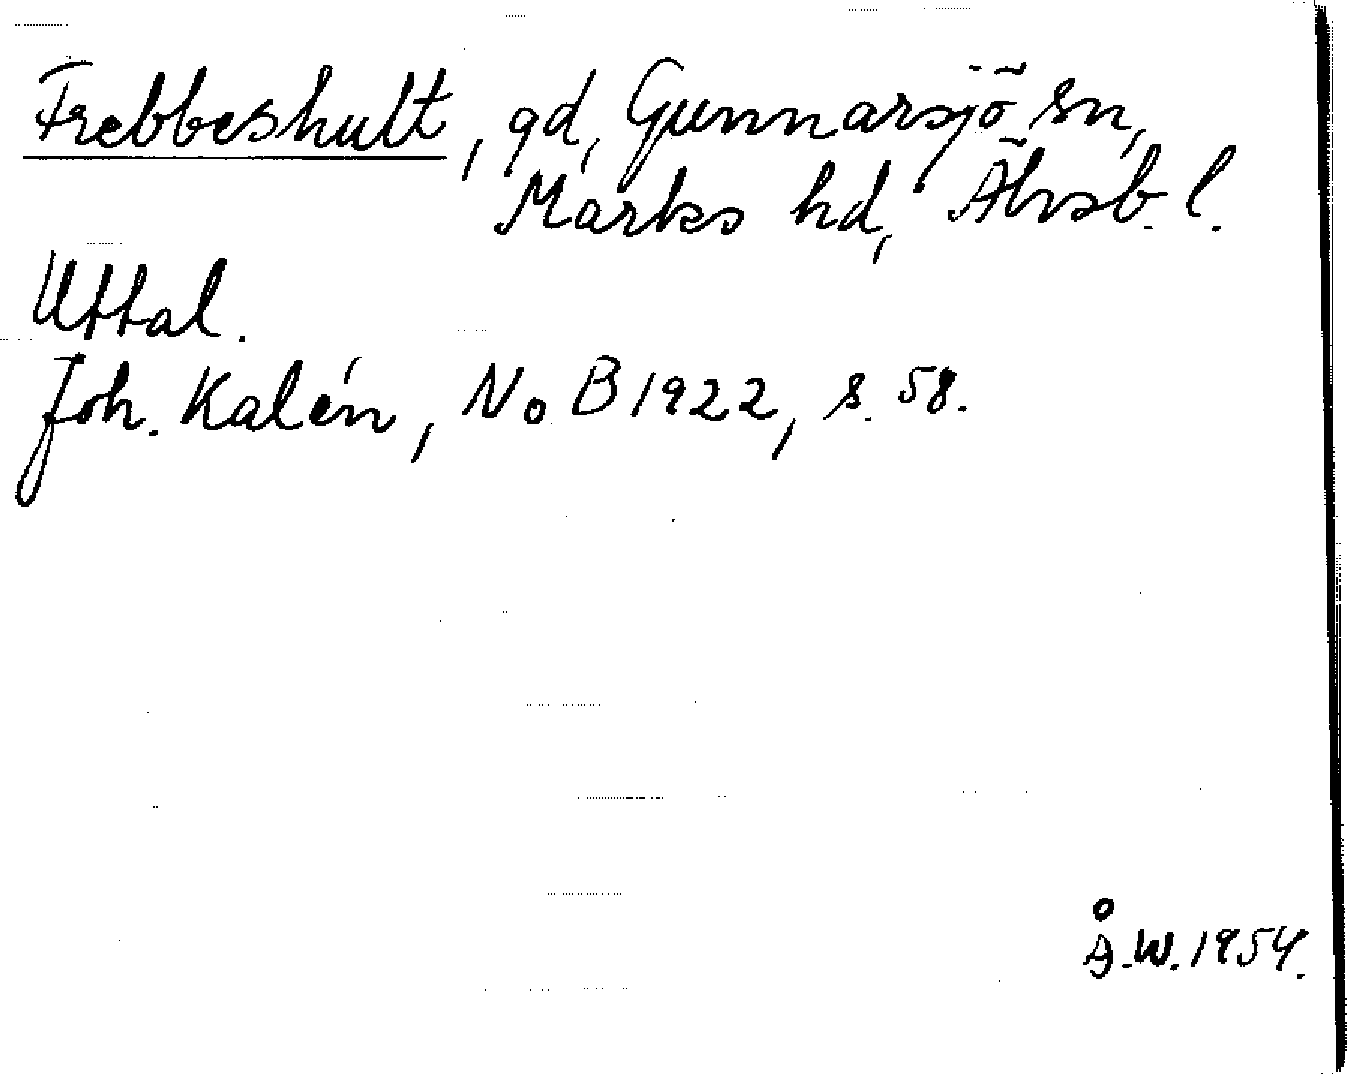 Frebbeshult, gd, Gunnarsjö sn,
Marks hd, Älvsb. l.
Uttal.
Joh. Kalén, NoB 1922, s. 58.
Å.W. 1954.